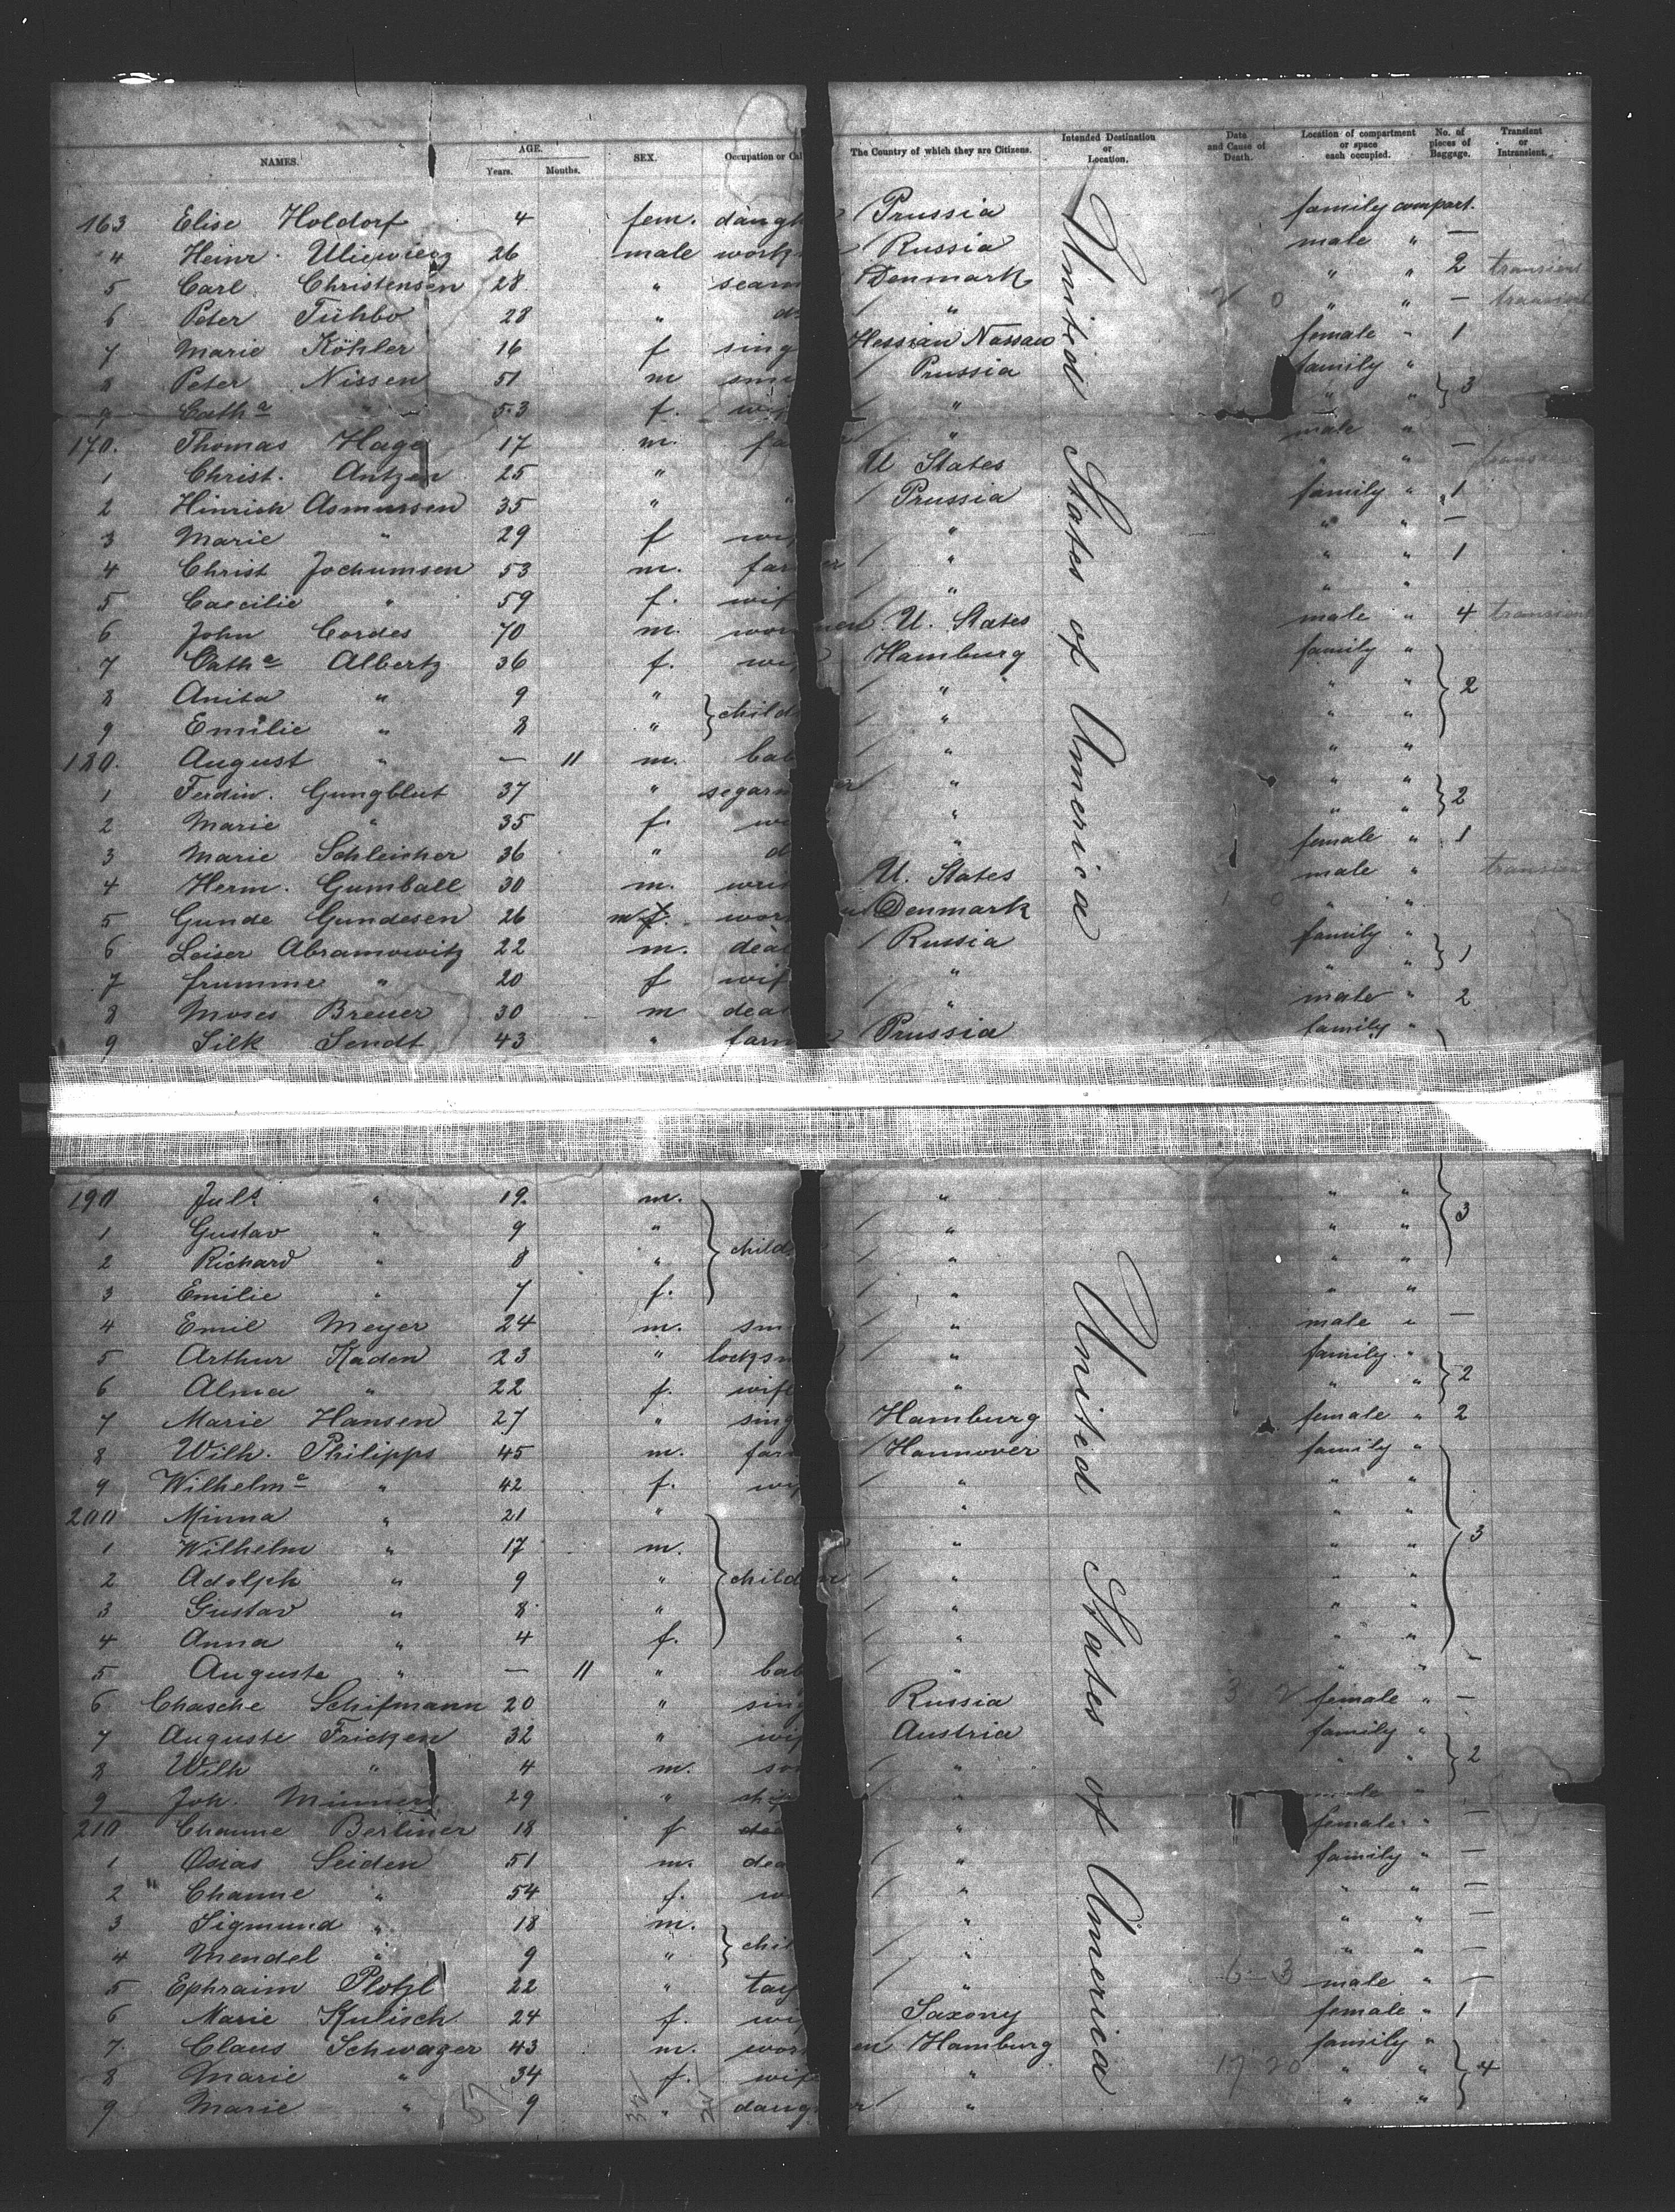 NAMES. AGE. Years. Months. SEX. Occupation or Cal The Country of which they are Citizens. Intended Destination or Location. Date and Cause of Death. Location of compartment or space each occupied. No. of pieces of Baggage. Transient or Intransient.
163 Elise Holdorf 4 fem. daugh Prussia family compart.
4 Heinr. 26 male work Russia male " —
5 Carl Christensen 28 " seam Denmark " " 2 transient
6 Peter Tühbo 28 " " " " — transient
7 Marie Köhler 16 f sing Hessian Nassau female " 1
8 Peter Nissen 51 m smi Prussia family "
9 Cathe " 53 f. wif " " " } 3
170. Thomas Hage 17 m. fa " male " —
1 Christ. Antzen 25 " U States " " transient
2 Hinrich Asmussen 35 " " Prussia family " 1
3 Marie " 29 f wif " " " —
4 Christ Jochumsen 53 m. farmer " " " 1
5 Caecilie " 59 f. wif " " "
6 John Cordes 70 m. wor men U. States male " 4 transient
7 Cathe Albertz 36 f. wi Hamburg family "
8 Anita " 9 " } child " " " } 2
9 Emilie " 8 " " " "
180. August " — 11 m. bab " " "
1 Ferdin. Gungblut 37 " segarm er " " "
2 Marie " 35 f. wi " " " } 2
3 Marie Schleicher 36 " d " female " 1
4 Herm. Gumball 30 m. U. States male " transient
5 Gunde Gundesen 26 m f. wor Denmark " "
6 Leiser Abramowitz 22 m. deal Russia family "
7 frumme " 20 f wif " " " } 1
8 Moses Breuer 30 m deal " male " 2
9 Silk Sendt 43 " farm Prussia family "
190 Juls " 19. m. " " "
1 Gustav " 9 " } child " " " } 3
2 Richard " 8 " " " "
3 Emilie " 7 f. " " "
4 Emil Meyer 24 m. smi " male " —
5 Arthur Kaden 23 " locksm " family "
6 Alma " 22 f. wife " " " } 2
7 Marie Hansen 27 " sing Hamburg female " 2
8 Wilh. Philipps 45 m. farm Hannover family "
9 Wilhelme " 42 f. wif " " "
200 Minna " 21 " " " "
1 Wilhelm " 17 m. " " " } 3
2 Adolph " 9 " } child " " "
3 Gustav " 8 " " " "
4 Anna " 4 f. " " "
5 Auguste " — 11 " bab " " " —
6 Chasche Schifmann 20 " sing Russia female " —
7 Auguste Fricken 32 " wif Austria family "
8 Wilh " 4 m. so " " " } 2
9 Joh. Minners 29 " ship " male "
210 Channe Berliner 18 f dea " female " —
1 Osias Seiden 51 m. dea " family " —
2 Channe " 54 f. w " " " —
3 Sigmund " 18 m. " " " —
4 Mendel " 9 " } chil " " " —
5 Ephraim Plotzl 22 " tay " male " —
6 Marie Kulisch 24 f. wif Saxony female " 1
7. Claus Schwager 43 m. wor en Hamburg family "
8 Marie " 34 f. wife " " " } 4
9 Marie " 9 " daughter " " "
United States of America
United States of America